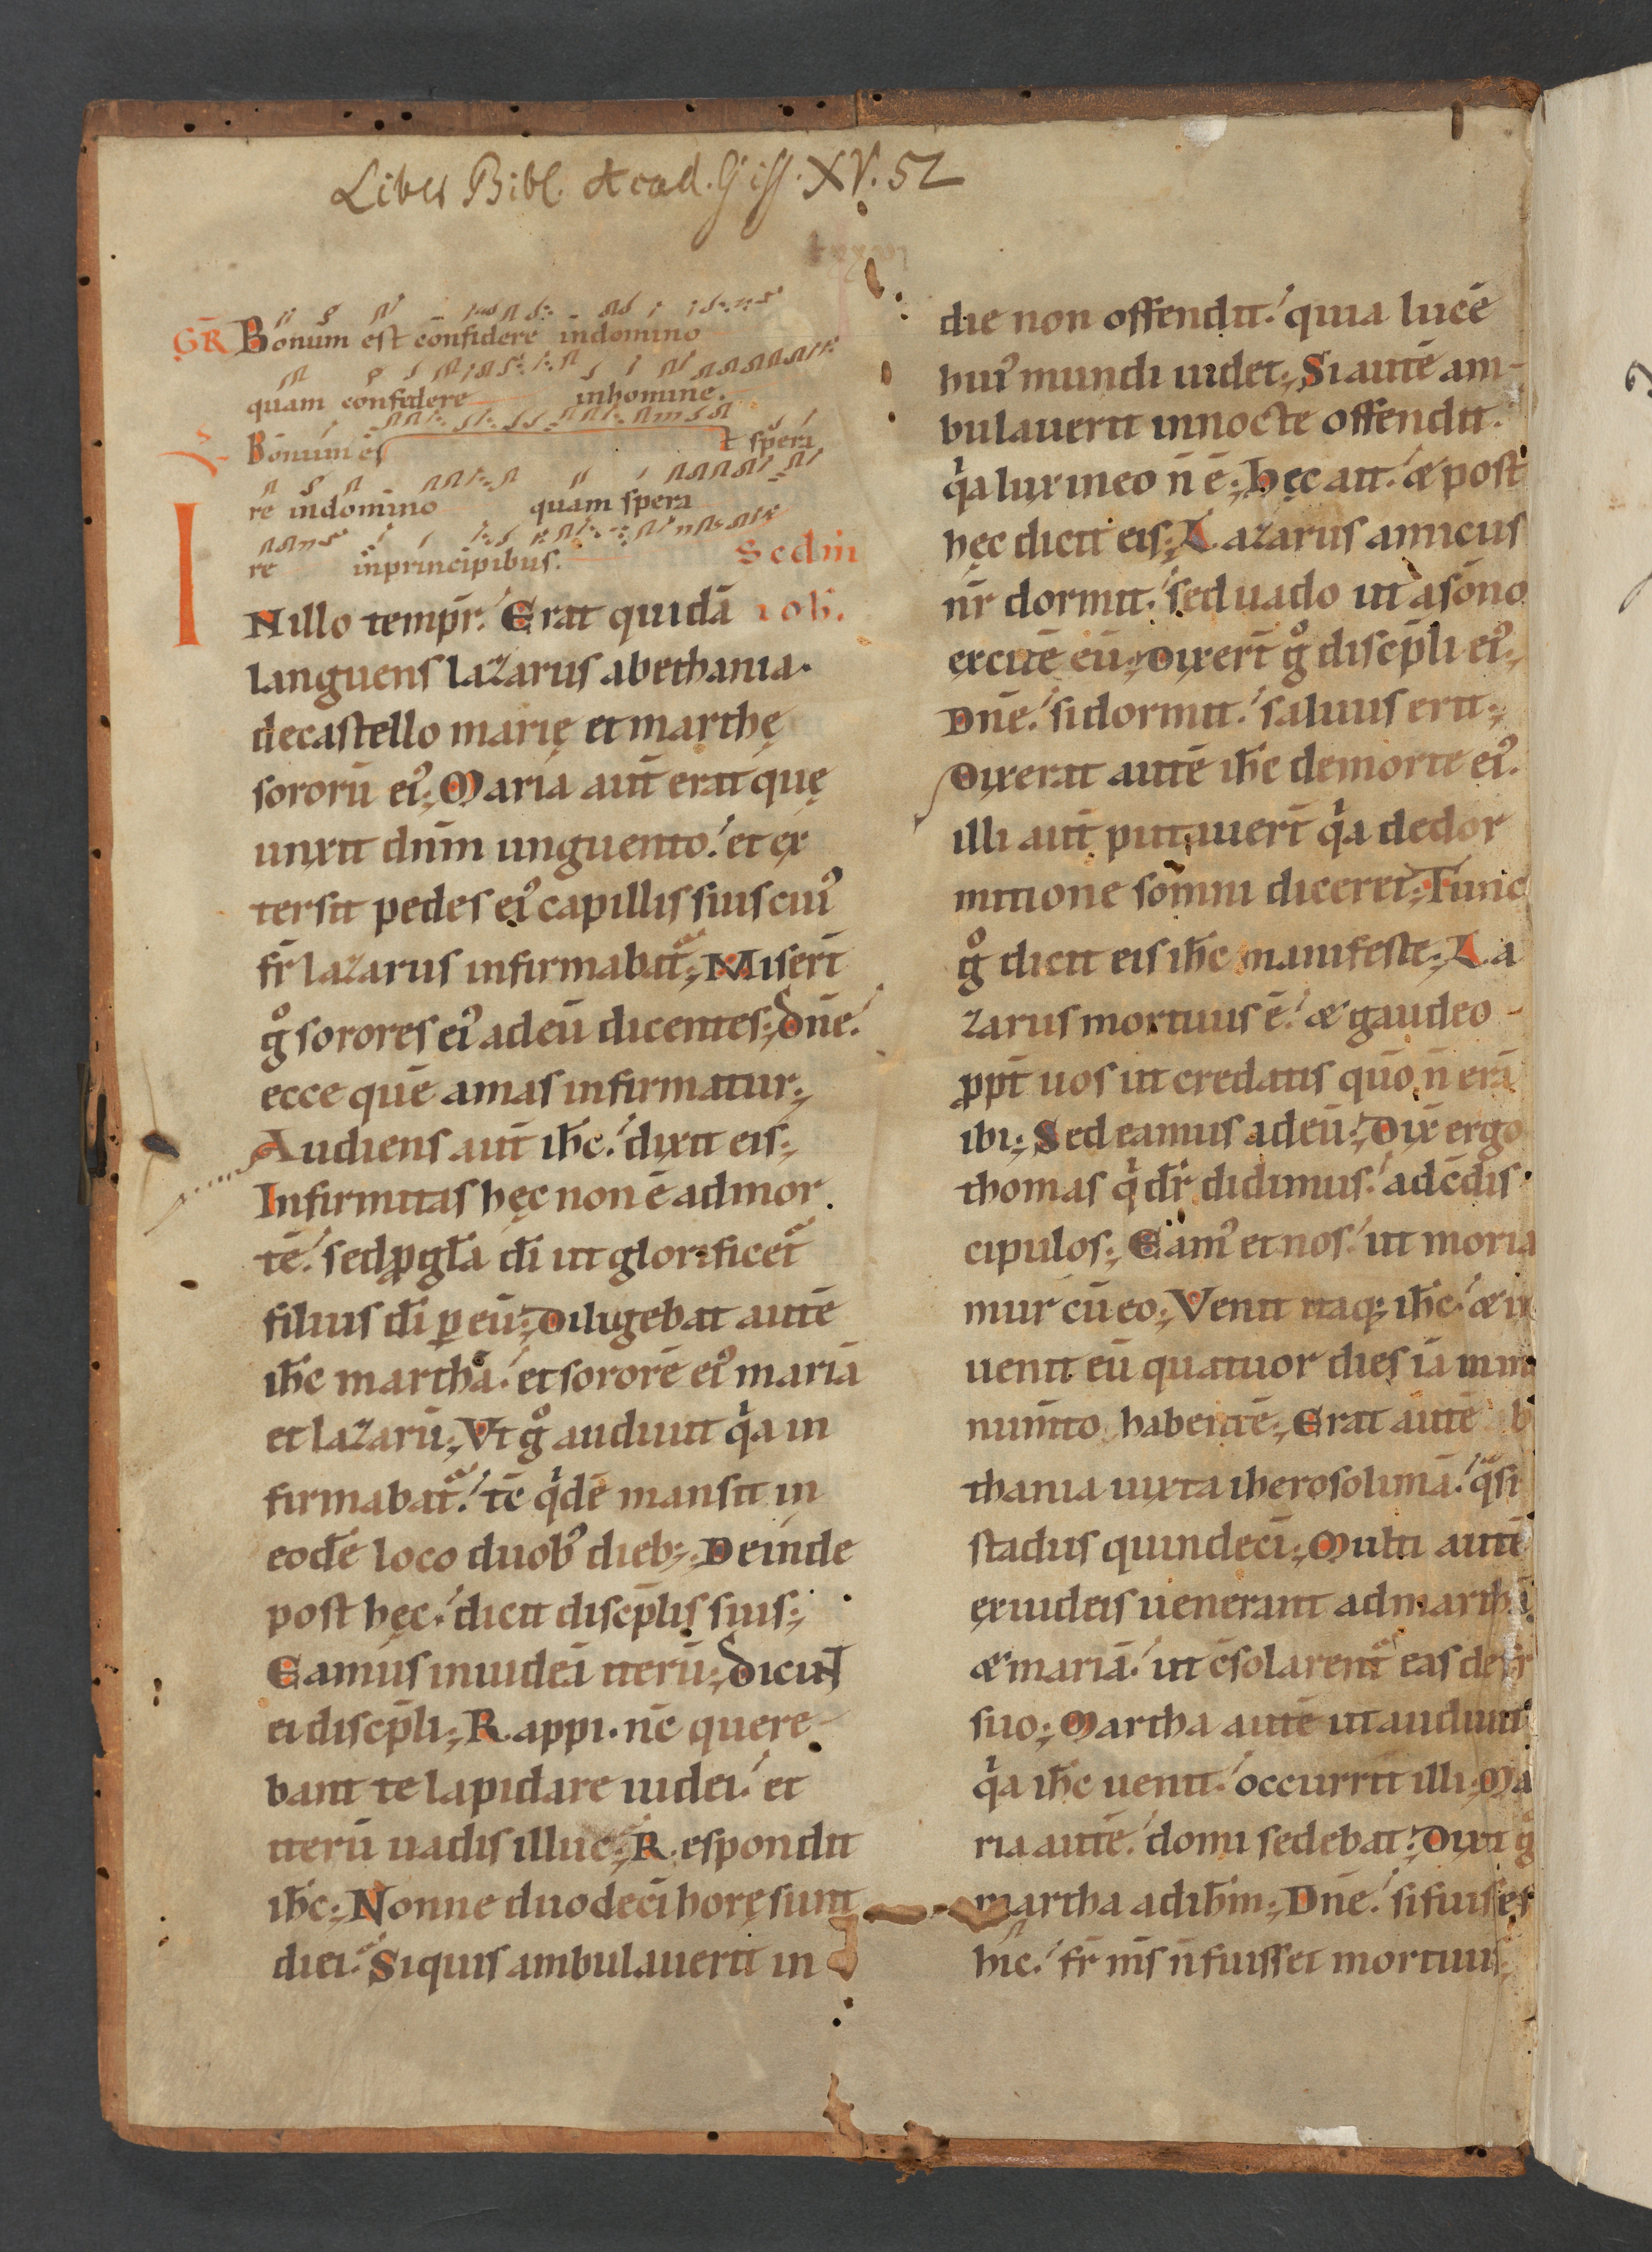 Liber Bibl. Acad. Giss. XV. 52
GR̄ Bonum est confidere indomino
quam confidere inhomine.
V. Bonum est spera
re indomino quam spera
re inprincipibus. Scdm̄
INillo tempr̄. Erat quidā ioh̄.
languens lazarus abethania.
decastello marię et marthę
sororū ei᾽; Maria aut̄ erat quę
unxit dn̄m unguento. et ex
tersit pedes ei᾽ capillis suis cui᾽
fr̄ lazarus infirmabat᷑; Miser̄t
gͦ sorores ei᾽ adeū dicentes; Dn̄e.
ecce quē amas infirmatur;
Audiens aut̄ ih̄c. dixit eis;
Infirmitas hęc non ē admor
tē. sed ꝓ gl̄a dī ut glorificet᷑
filius dī ꝑ eū; Diligebat autē
ih̄c marthā. et sororē ei᾽ mariā
et lazarū; Vt gͦ audiuit qͥa in
firmabat᷑. tc̄ qͥdē mansit in
eodē loco duob᾽ dieb;; Deinde
post hęc. dicit discip̄lis suis;
Eamus iniudeā iterū; Dicunt
ei discip̄li; Rappi. nc̄ quere
bant te lapidare iudei. et
iterū uadis illuc; Respondit
ih̄c; Nonne duodecī horę sunt
diei. Siquis ambulauerit in
die non offendit. quia lucē
hui᾽ mundi uidet; Si autē am-
bulauerit innocte offendit.
qͥa lux ineo n̄ ē; Hęc ait. & post
hęc dicit eis; Lazarus amicus
nr̄ dormit. sed uado ut asōno
excitē eū; Dixer̄t gͦ discip̄li ei᾽;
Dn̄e. sidormit. saluus erit;
Dixerat autē ih̄c demorte ei᾽.
illi aut̄ putauer̄t qͥa dedor
mitione somni diceret; Tunc
gͦ dicit eis ih̄c manifeste; La
zarus mortuus ē. & gaudeo
ꝓpt̄ uos ut credatis qūo n̄ erā
ibi; Sed eamus adeū; Dix̄ ergo
thomas qͥ dr̄ didimus. adc̄dis
cipulos; Eam᾽ et nos. ut moria
mur cū eo; Venit itaq; ih̄c. & in
uenit eū quatuor dies iā inm
num̄to habentē; Erat autē b
thania iuxta iherosolimā. qͣsi
stadiis quindecī; Multi autē
exiudeis uenerant admarthā
& mariā. ut c̄solarent᷑ eas defr̄
suo; Martha autē ut audiuit
qͥa ih̄c uenit. occurrit illi; Ma
ria autē. domi sedebat; Dixit gͦ
martha adih̄m; Dn̄e. sifuisses
hic. fr̄ m̄s n̄ fuisset mortuus;